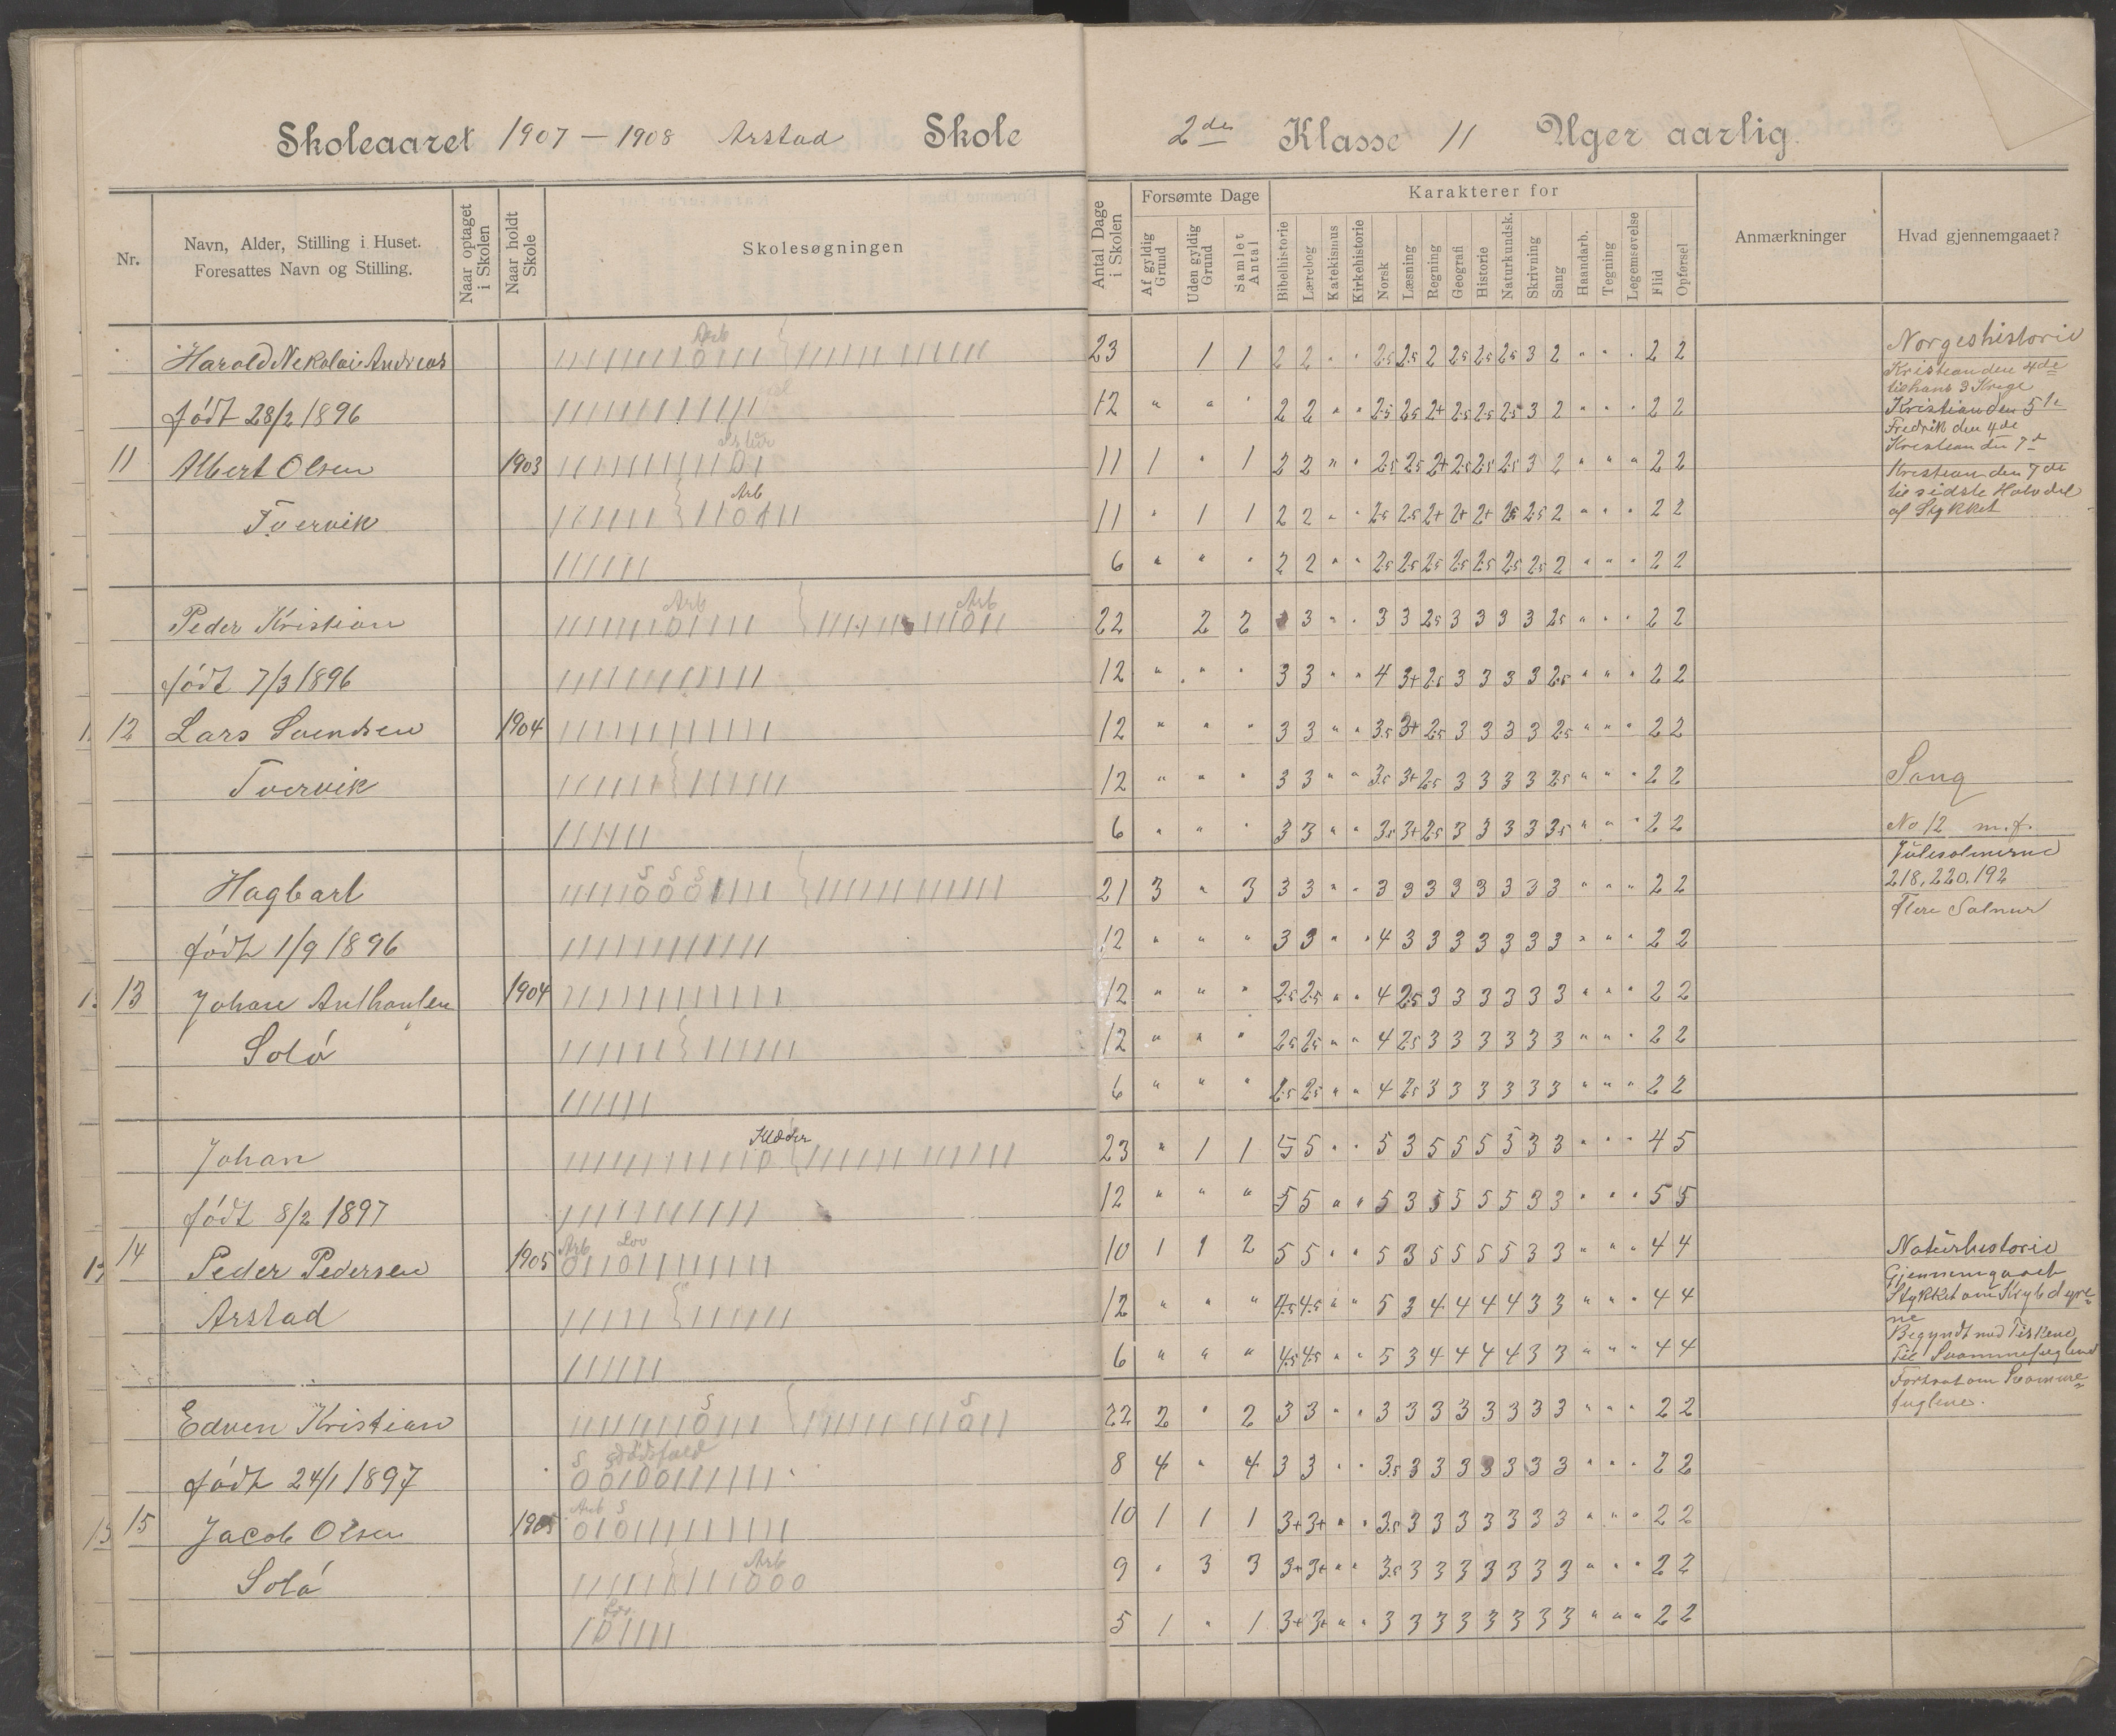 Skoleaaret 1907 – 1908 Arstad Skole
2den Klasse 11 Uger aarlig.
Nr.
Navn, Alder, Stilling i Huset.
Foresattes Navn og Stilling.
Naar optaget i Skolen
Naar holdt Skole
Skolesøgningen
Antal Dage i Skolen
Forsømte Dage
Af gyldig Grund
Uden gyldig Grund
Samlet Antal
Karakterer for
Bibelhistorie
Lærebog
Katekismus
Kirkehistorie
Norsk
Læsning
Regning
Geografi
Historie
Naturkundsk.
Skrivning
Sang
Haandarb.
Tegning
Legemsøvelse
Flid
Opførsel
Anmærkninger
Hvad gjennemgaaet?
Harald Nekolai Andreas Arb 23 1 1 2 2 " " 2.5 2.5 2 2.5 2.5 2.5 3 2 " " " 2 2
født 28/2 1896 12 " " " 2 2 " " 2.5 2.5 2+ 2.5 2.5 2.5 3 2 " " " 2 2
11 Albert Olsen 1903 11 1 " 1 2 2 " " 2.5 2.5 2+ 2.5 2.5 2.5 3 2 " " " 2 2
Tvervik Arb 11 " 1 1 2 2 " " 2.5 2.5 2+ 2+ 2+ 2.5 2.5 2 " " " 2 2
6 " " " 2 2 " " 2.5 2.5 2.5 2.5 2.5 2.5 2.5 2 " " " 2 2
Peder Kristian Arb Arb 22 2 2 3 " " 3 3 2.5 3 3 3 3 2.5 " " " 2 2
født 7/3 1896 12 " " " 3 3 " " 4 3+ 2.5 3 3 3 3 2.5 " " " 2 2
12 Lars Svendsen 1904 12 " " " 3 3 " " 3.5 3+ 2.5 3 3 3 3 2.5 " " " 2 2
Tvervik 12 " " " 3 3 " " 3.5 3+ 2.5 3 3 3 3 2.5 " " " 2 2
6 " " " 3 3 " " 3.5 3+ 2.5 3 3 3 3 3.5 " " " 2 2
Hagbart S S S 21 3 " 3 3 3 " " 3 3 3 3 3 3 3 3 " " " 2 2
født 1/9 1896 12 " " " 3 3 " " 4 3 3 3 3 3 3 3 " " " 2 2
13 Johan Anthonsen 1904 12 " " " 2.5 2.5 " " 4 2.5 3 3 3 3 3 3 " " " 2 2
Solø 12 " " " 2.5 2.5 " " 4 2.5 3 3 3 3 3 3 " " " 2 2
6 " " " 2.5 2.5 " " 4 2.5 3 3 3 3 3 3 " " " 2 2
Johan Klæder 23 " 1 1 5 5 " " 5 3 5 5 5 5 3 3 " " " 4 5
født 8/2 1897 12 " " " 5 5 " " 5 3 5 5 5 5 3 3 " " " 5 5
14 Peder Pedersen 1905 Arb Lov 10 1 1 2 5 5 " " 5 3 5 5 5 5 3 3 " " " 4 4
Arstad 12 " " " 4.5 4.5 " " 5 3 4 4 4 4 3 3 " " " 4 4
6 " " " 4.5 4.5 " " 5 3 4 4 4 4 3 3 " " " 4 4
Edven Kristian S S 22 2 " 2 3 3 " " 3 3 3 3 3 3 3 3 " " " 2 2
født 24/1 1897 S S Dødsfald 8 4 " 4 3 3 " " 3.5 3 3 3 3 3 3 3 " " " 2 2
15 Jacob Olsen 1905 Arb S 10 1 1 1 3+ 3+ " " 3.5 3 3 3 3 3 3 3 " " " 2 2
Solø Arb 9 " 3 3 3+ 3+ " " 3.5 3 3 3 3 3 3 3 " " " 2 2
Lov. 5 1 " 1 3+ 3+ " " 3 3 3 3 3 3 3 3 " " " 2 2
Norgeshistorie
Kristian den 4de
til hans 3 Krige
Kristian den 5te
Fredrik den 4de
Kristian den 7d
Kristian den 7de
til sidste Halvdel
af Stykket
Sang
No 12 m.f.
Julesalmerne
218, 220, 192
Flere Salmer
Naturhistorie
Gjennemgaaet
Stykket om Krybdyre-
ne
Begyndt med Fiskene
Til Svømmefuglene
Fortsat om Svømme-
fuglene.